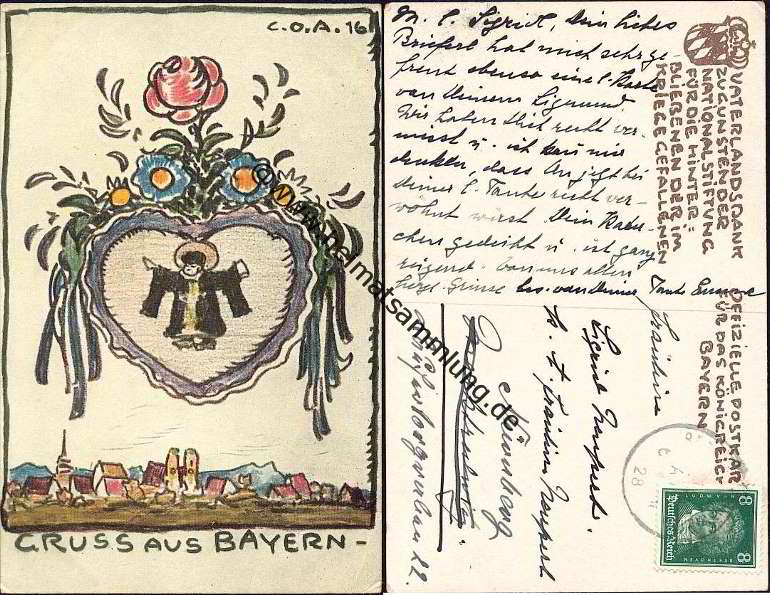 C.O.A. 16
GRUSS AUS BAYERN -
©www.heimatsammlung.de
M. l. Sigrid, Dein liebes
Brieferl hat mich sehr ge-
freut ebenso eine l. Karte
von Deinem Sigmund.
Wir haben Dich recht ver-
misst u. ich kann mir
denken, dass Du jetzt bei
Deiner l. Tante recht ver-
wöhnt wirst. Dein
gedeiht u. ist ganz
reizend. Von uns allen
herzl. Grüsse bes. von Deiner Tante
VATERLANDSDANK
ZUGUNSTEN DER
NATIONALSTIFTUNG
FÜR DIE HINTER=
BLIEBENEN DER IM
KRIEGE GEFALLENEN
OFFIZIELLE POSTKARTE
FÜR DAS KÖNIGREICH
BAYERN
Fräulein
Sigrid Neupert
b. Fräulein Neupert
Nürnberg
22.
28
8 8
Deutsches Reich
BEETHOVEN